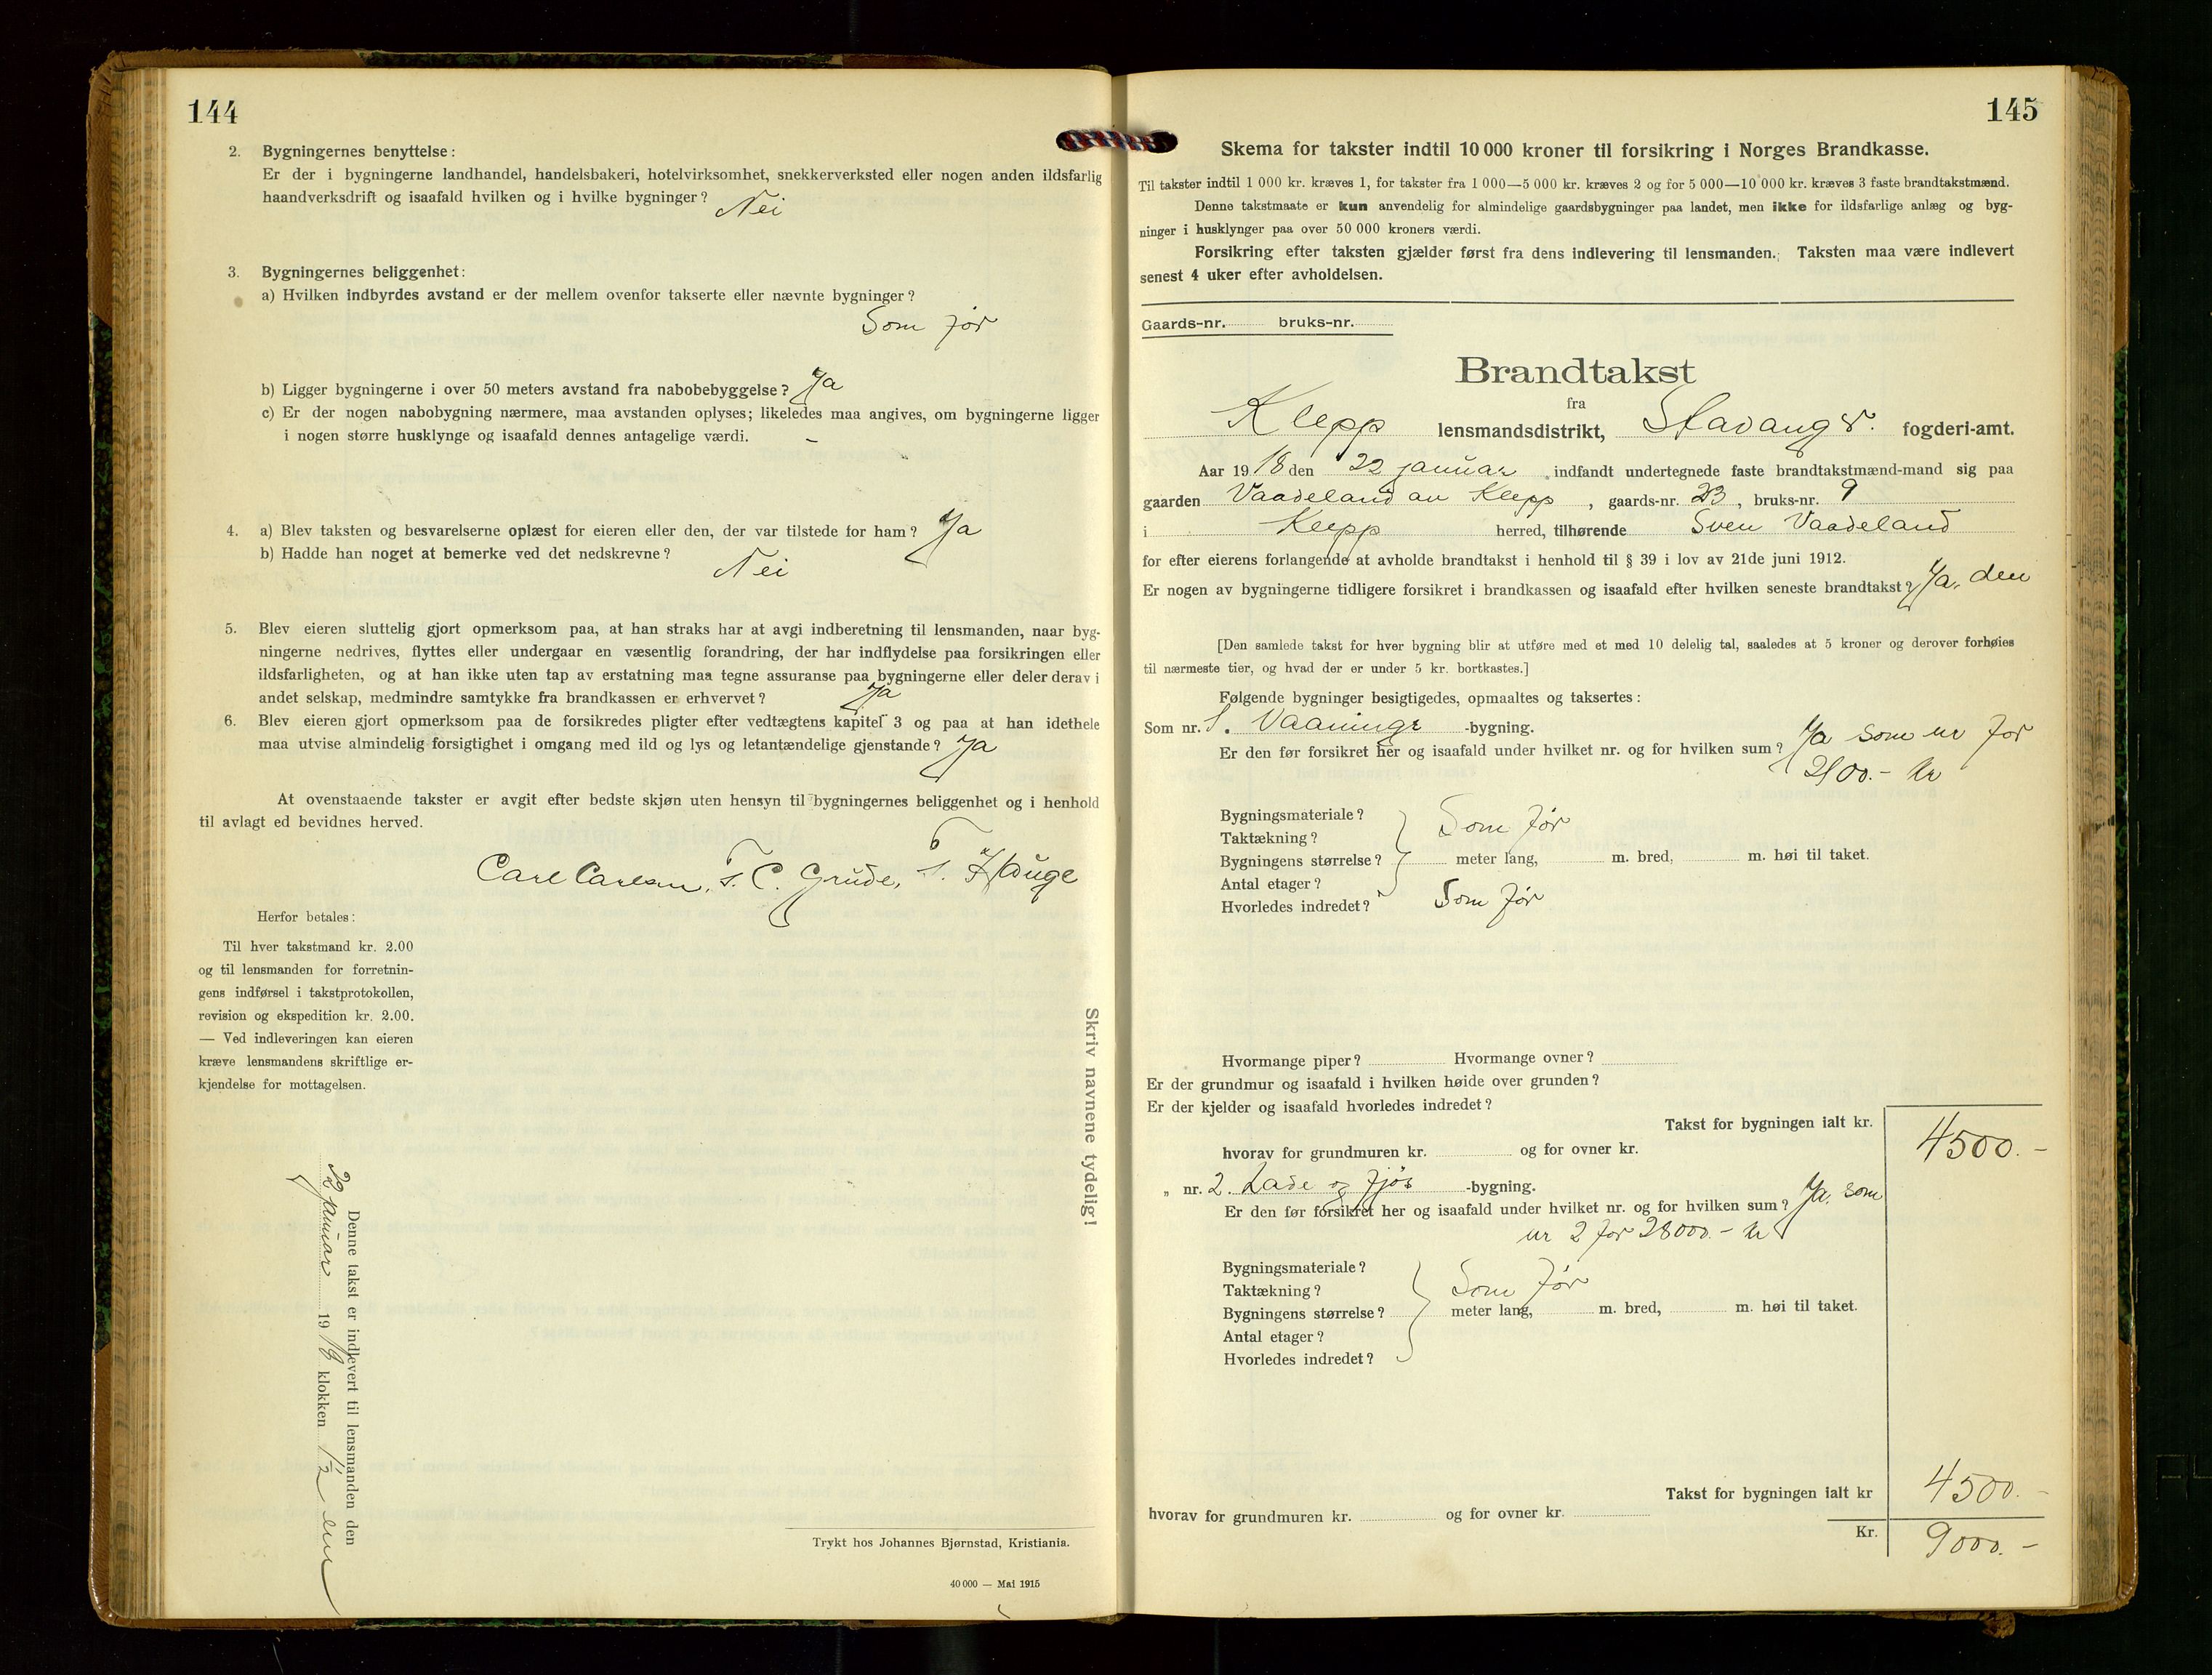 144
2. Bygningernes benyttelse:
Er der i bygningerne landhandel, handelsbakeri, hotelvirksomhet, snekkerverksted eller nogen anden ildsfarlig
haandverksdrift og isaafald hvilken og i hvilke bygninger? Nei
3. Bygningernes beliggenhet:
a) Hvilken indbyrdes avstand er der mellem ovenfor takserte eller nævnte bygninger?
Som før
b) Ligger bygningerne i over 50 meters avstand fra nabobebyggelse? Ja
c) Er der nogen nabobygning nærmere, maa avstanden oplyses; likeledes maa angives, om bygningerne ligger
i nogen større husklynge og isaafald dennes antagelige værdi. –
4. a) Blev taksten og besvarelserne oplæst for eieren eller den, der var tilstede for ham? Ja
b) Hadde han noget at bemerke ved det nedskrevne? Nei
5. Blev eieren sluttelig gjort opmerksom paa, at han straks har at avgi indberetning til lensmanden, naar byg-
ningerne nedrives, flyttes eller undergaar en væsentlig forandring, der har indflydelse paa forsikringen eller
ildsfarligheten, og at han ikke uten tap av erstatning maa tegne assuranse paa bygningerne eller deler derav i
andet selskap, medmindre samtykke fra brandkassen er erhvervet? Ja
6. Blev eieren gjort opmerksom paa de forsikredes pligter efter vedtægtens kapitel 3 og paa at han idethele
maa utvise almindelig forsigtighet i omgang med ild og lys og letantændelige gjenstande? Ja
At ovenstaaende takster er avgit efter bedste skjøn uten hensyn til bygningernes beliggenhet og i henhold
til avlagt ed bevidnes herved.
Carl Carlsen, T. C. Grude, T. Hauge
Herfor betales:
Til hver takstmand kr. 2.00
og til lensmanden for forretnin-
gens indførsel i takstprotokollen,
revision og ekspedition kr. 2.00.
— Ved indleveringen kan eieren
kræve lensmandens skriftlige er-
kjendelse for mottagelsen.
Skriv navnene tydelig!
Denne takst er indlevert til lensmanden den
22 januar 1918 klokken 1/2 en
Trykt hos Johannes Bjørnstad, Kristiania.
40 000 — Mai 1915
145
Skema for takster indtil 10 000 kroner til forsikring i Norges Brandkasse.
Til takster indtil 1 000 kr. kræves 1, for takster fra 1 000—5 000 kr. kræves 2 og for 5 000—10 000 kr. kræves 3 faste brandtakstmænd.
Denne takstmaate er kun anvendelig for almindelige gaardsbygninger paa landet, men ikke for ildsfarlige anlæg og byg-
ninger i husklynger paa over 50 000 kroners værdi.
Forsikring efter taksten gjælder først fra dens indlevering til lensmanden. Taksten maa være indlevert
senest 4 uker efter avholdelsen.
Gaards-nr. bruks-nr.
Brandtakst
fra
Klepp lensmandsdistrikt, Stavanger. fogderi-amt.
Aar 1918 den 22 januar indfandt undertegnede faste brandtakstmænd-mand sig paa
gaarden Vaadeland av Klepp, gaards-nr. 23, bruks-nr. 9
i Klepp herred, tilhørende Sven Vaadeland
for efter eierens forlangende at avholde brandtakst i henhold til § 39 i lov av 21de juni 1912.
Er nogen av bygningerne tidligere forsikret i brandkassen og isaafald efter hvilken seneste brandtakst? Ja, den
[Den samlede takst for hver bygning blir at utføre med et med 10 delelig tal, saaledes at 5 kroner og derover forhøies
til nærmeste tier, og hvad der er under 5 kr. bortkastes.]
Følgende bygninger besigtigedes, opmaaltes og taksertes:
Som nr. 1. Vaanings -bygning.
Er den før forsikret her og isaafald under hvilket nr. og for hvilken sum? Ja som nr for
2100.- kr
Bygningsmateriale?
Taktækning? Som før
Bygningens størrelse? meter lang, m. bred, m. høi til taket.
Antal etager?
Hvorledes indredet? Som før
Hvormange piper? Hvormange ovner?
Er der grundmur og isaafald i hvilken høide over grunden?
Er der kjelder og isaafald hvorledes indredet?
Takst for bygningen ialt kr. 4500.-
hvorav for grundmuren kr. og for ovner kr.
„ nr. 2. Lade og fjøs -bygning.
Er den før forsikret her og isaafald under hvilket nr. og for hvilken sum? Ja, som
nr 2 for 28000.- kr
Bygningsmateriale?
Taktækning? Som før
Bygningens størrelse? meter lang, m. bred, m. høi til taket.
Antal etager?
Hvorledes indredet?
Takst for bygningen ialt kr 4500.-
hvorav for grundmuren kr. og for ovner kr.
Kr. 9000.-